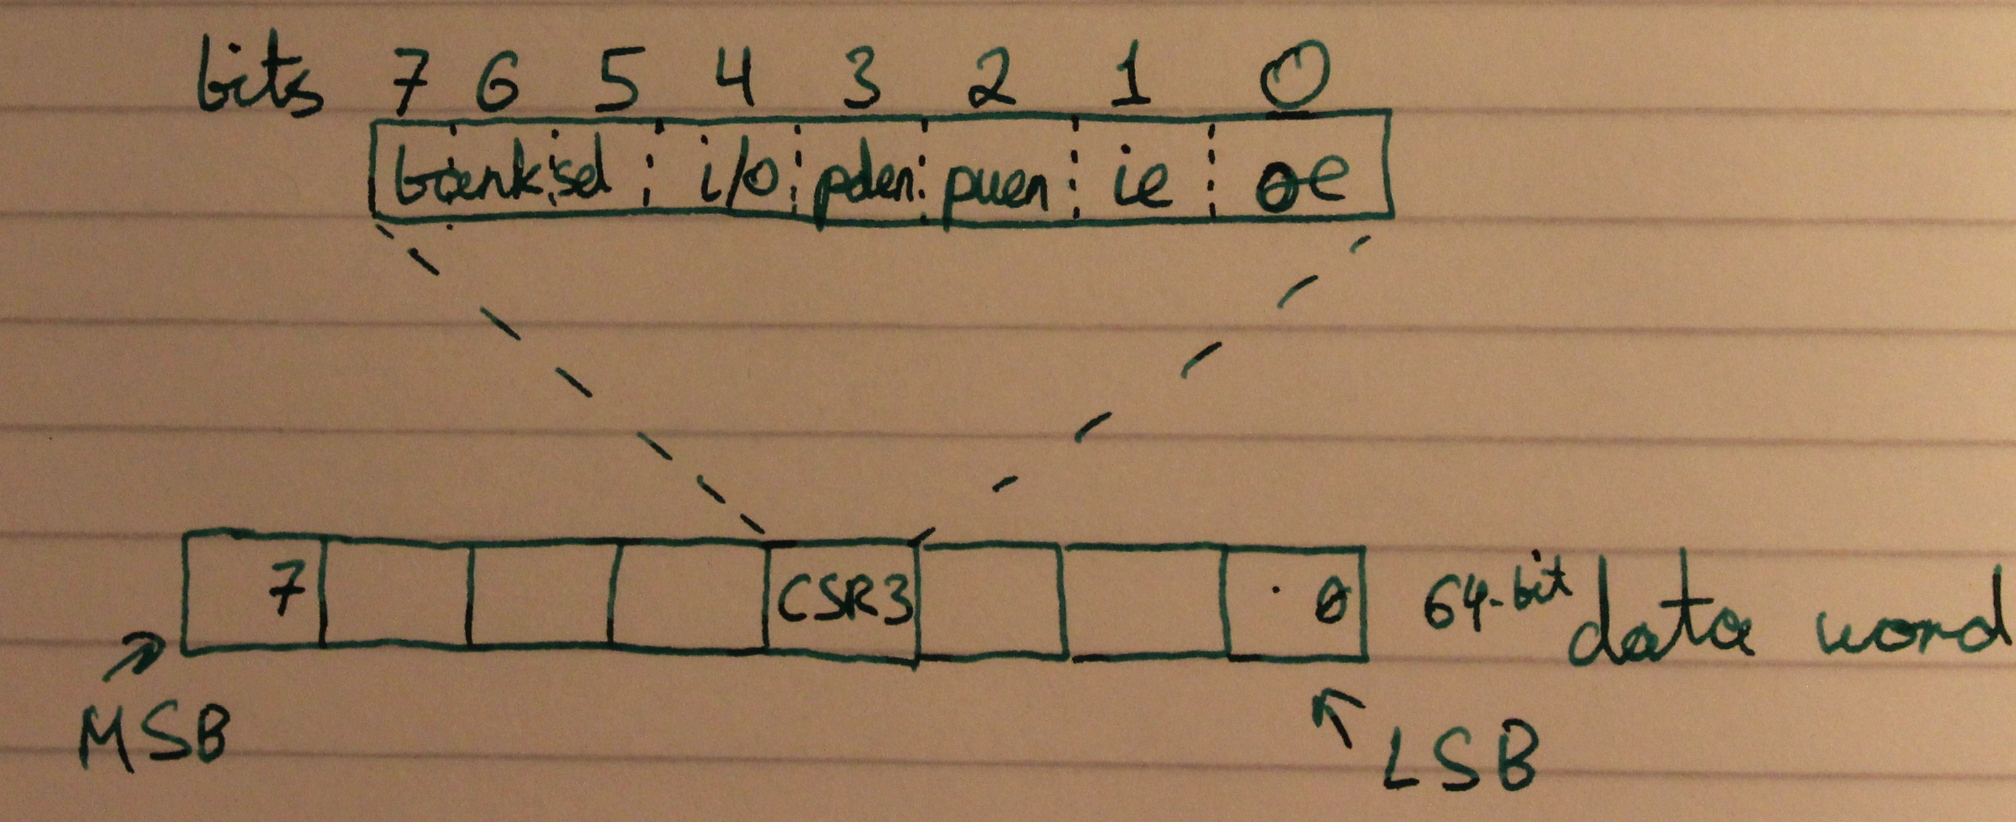 bits 7 6 5 4 3 2 1 0
bank sel i/o pden puen ie oe
7 CSR3 0 64-bit data word
MSB LSB